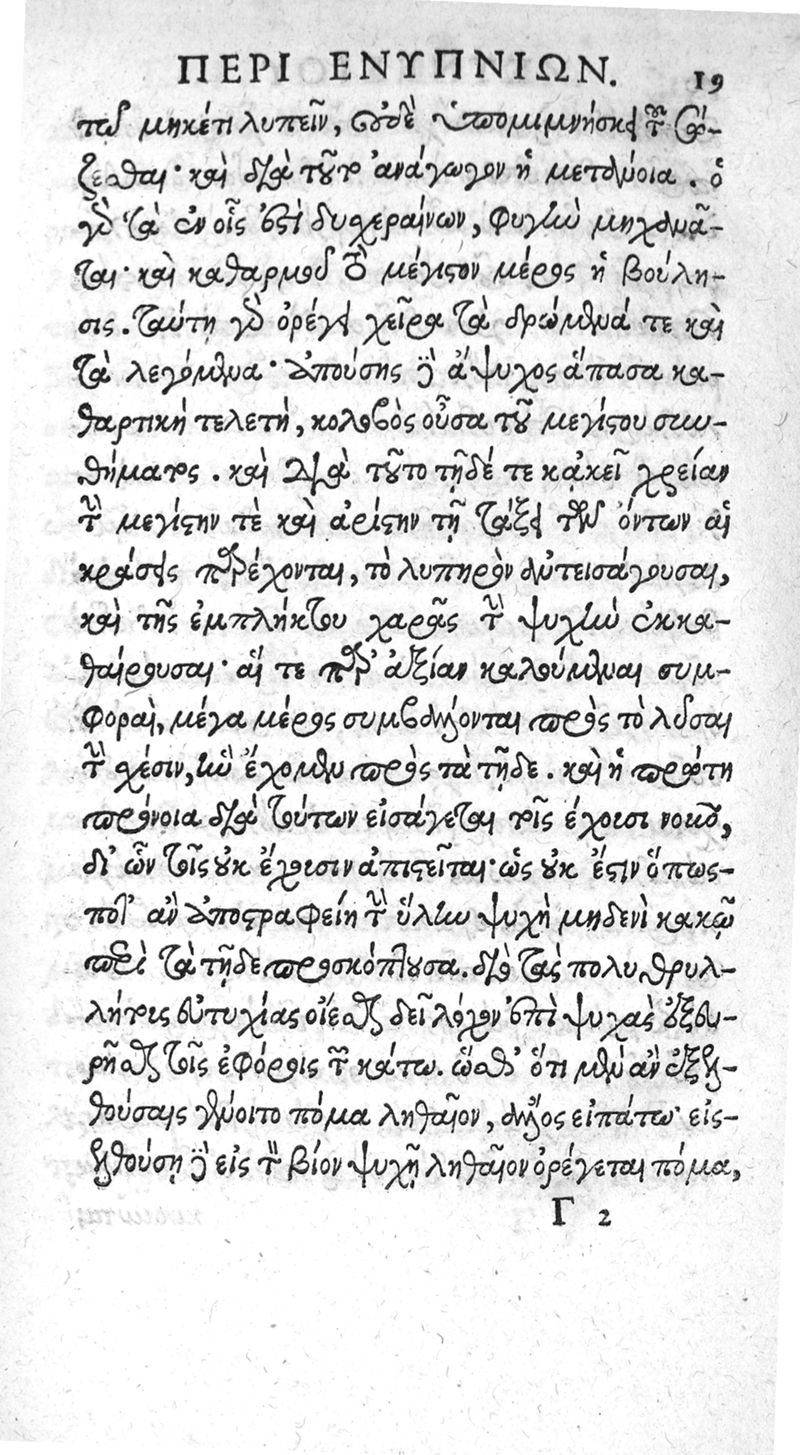 ΠΕΡΙ ΕΝΥΠΝΙΩΝ. 19
τοῦ μηκέτι λυπεῖν, οὐδὲ ὑπομιμνήσκει
ζεσθαι· καὶ διὰ τοῦτο ἀνάγωγον ἡ μετάνοια. ὁ
γὰρ τὰ ἐν οἷς ἐστὶ δυχεραίνων, φυγὴν μηχανᾶ-
ται· καὶ καθαρμοῦ τὸ μέγιστον μέρος ἡ βούλη-
σις. ταύτῃ γὰρ ὀρέγει χεῖρα τὰ δρώμενά τε καὶ
τὰ λεγόμενα· ἀπούσης δὲ ἄψυχος ἅπασα κα-
θαρτικὴ τελετή, κολοβὸς οὖσα τοῦ μεγίστου συν-
θήματος. καὶ διὰ τοῦτο τῇδέ τε κἀκεῖ χρείαν
τὴν μεγίστην τὲ καὶ ἀρίστην τῇ τάξει τῶν ὄντων αἱ
κράσεις παρέχονται, τὸ λυπηρὸν ἀντεισάγουσαι,
καὶ τῆς ἐμπλήκτου χαρᾶς τὴν ψυχὴν ἐκκα-
θαίρουσαι· αἵ τε παρ' ἀξίαν καλούμεναι συμ-
φοραὶ, μέγα μέρος συμβάλλονται πρὸς τὸ λῦσαι
τὴν χέσιν, ἣν ἔχομεν πρὸς τὰ τῇδε. καὶ ἡ πρώτη
πρόνοια διὰ τούτων εἰσάγεται τοῖς ἔχουσι νοῦν,
δι' ὧν τοῖς οὐκ ἔχουσιν ἀπιστεῖται· ὡς οὐκ ἔστιν ὅπως-
ποτ' ἂν ἀποστραφείη τὴν ὕλην ψυχὴ μηδενὶ κακῷ
περὶ τὰ τῇδε προσκόπτουσα. διὸ τὰς πολυθρυλ-
λήτους εὐτυχίας οἴεσθαι δεῖ λόχον ἐπὶ ψυχὰς ἐξευ-
ρῆσθαι τοῖς ἐφόροις τῶν κάτω. ὥσθ' ὅτι μὲν ἂν ἐξελ-
θούσαις γένοιτο πόμα ληθαῖον, ἄλλος εἰπάτω· εἰσ-
ελθούσῃ δὲ εἰς τὸν βίον ψυχῇ ληθαῖον ὀρέγεται πόμα,
Γ 2